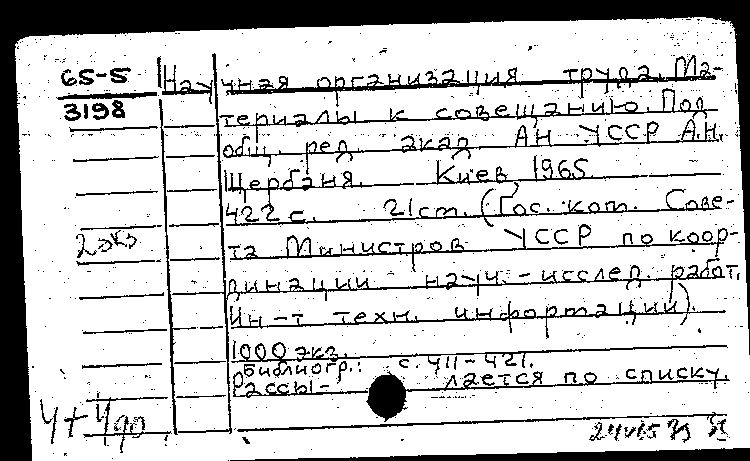 65-5 Научная организация труда. Ма-
3198 териалы к совещанию. Под
общ. ред. акад. АН УССР А.Н.
Щербаня. Киев, 1965.
422 с. 21 см. (Гос. ком. Сове-
2 экз та Министров УССР по коор-
динации науч.-исслед. работ.
Ин-т техн. информации).
1000 экз.
Библиогр.: с. 411-421.
Рассы- лается по списку.